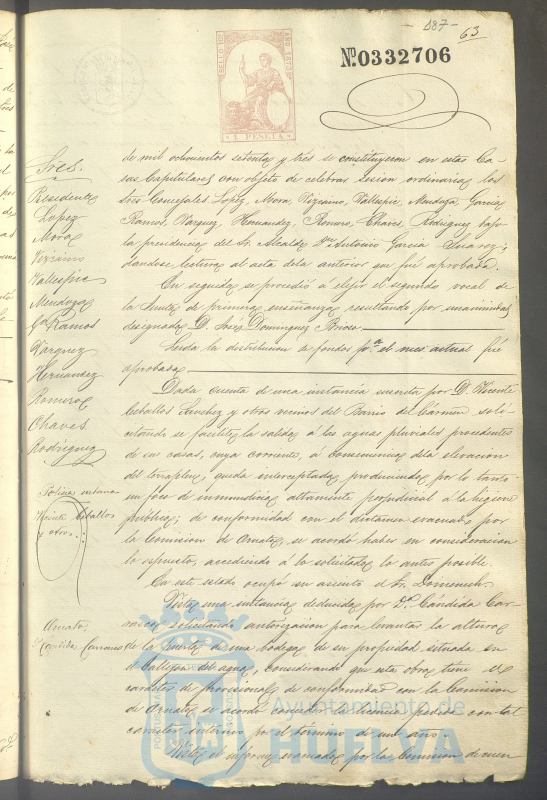 - 187 -
63
SELLO 10º AÑO 1873
1 PESETA
Nº 0332706
Sres.
Presidente
Lopez
Mora
Vizcaino
Vallespin
Mendoza
Ga Ramos
Vazquez
Hernandez
Romero
Chaves
Rodriguez
de mil ochocientos setenta y tres se constituyeron en estas Ca-
sas Capitulares con objeto de celebrar sesion ordinaria los
Sres Concejales Lopez, Mora, Vizcaino, Vallespin, Mendoza, Garcia
Ramos, Vazquez, Hernandez, Romero, Chaves, Rodriguez bajo
la presidencia del Sr. Alcalde Dn Antonio Garcia
dandose lectura al acta de la anterior que fué aprobada.
En seguida se procedió á elejir el segundo vocal de
la Junta de primera enseñanza resultando por unanimidad
designado D. José Dominguez
Leida la distribucion de fondos pa. el mes actual fué
aprobada
Dada cuenta de una instancia suscrita por D. Vicente
Ceballos y otros vecinos del Barrio del Cármen soli-
citando se facilite la salida á las aguas pluviales procedentes
de sus casas, cuya corriente, á consecuencia de la elevacion
del terraplen, queda interceptada produciendo por lo tanto
un foco de inmundicia altamente perjudicial á la higiene
pública; de conformidad con el dictamen evacuado por
la Comision de Ornato, se acordó haber en consideracion
lo espuesto, accediendo á lo solicitado lo antes posible.
Policia urbana
Vicente Ceballos
y otros
En este estado ocupó su asiento el Sr. Domenech.
Vista una instancia deducida por Da. Cándida Car-
solicitando autorizacion para levantar la altura
de la puerta de una bodega de su propiedad situada en
el Callejon del agua, considerando que esta obra tiene el
caracter de provisional, de conformidad con la Comision
de Ornato se acordó conceder la licencia pedida con tal
caracter interino por el término de un año.
Vista el informe evacuado por la Comision de
Ornato
Candida
Ayuntamiento de
HUELVA